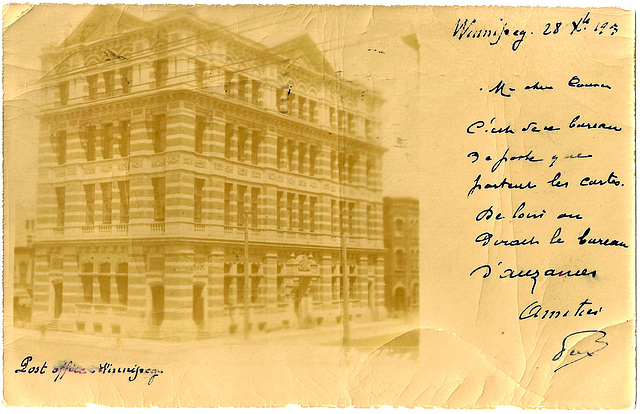 Winnipeg. 28 Xbre 1905
Mon cher Cousin
C'est de ce bureau
de poste que
partent les cartes.
De loin on
Dirait le bureau
D'auzances
Amitiés
Post office - Winnipeg.